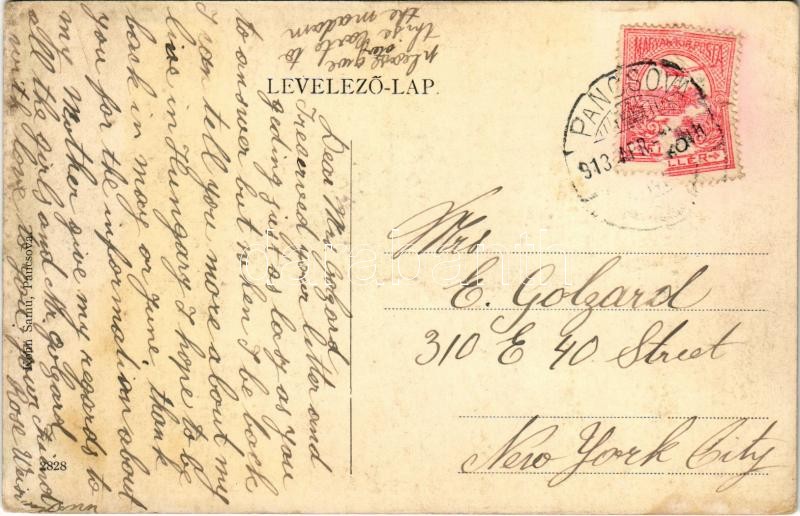 please give
this over
carte to
the madam
LEVELEZŐ-LAP.
MAGYAR KIR. POSTA
PANCSOVA
913 APR
Dear Mrs
I received your letter and
just as lasy as you
to answer but when I be back
I can tell you more about my
live in Hungary I hope to be
back in may or june thank
you for the information about
my Mother give my regards to
all the girls and Mr Golzard
with love your Friend
Rose
Kohn Samu, Pancsova.
2828
Mrs
E. Golzard
310 E 40 Street
New York City
darabanth